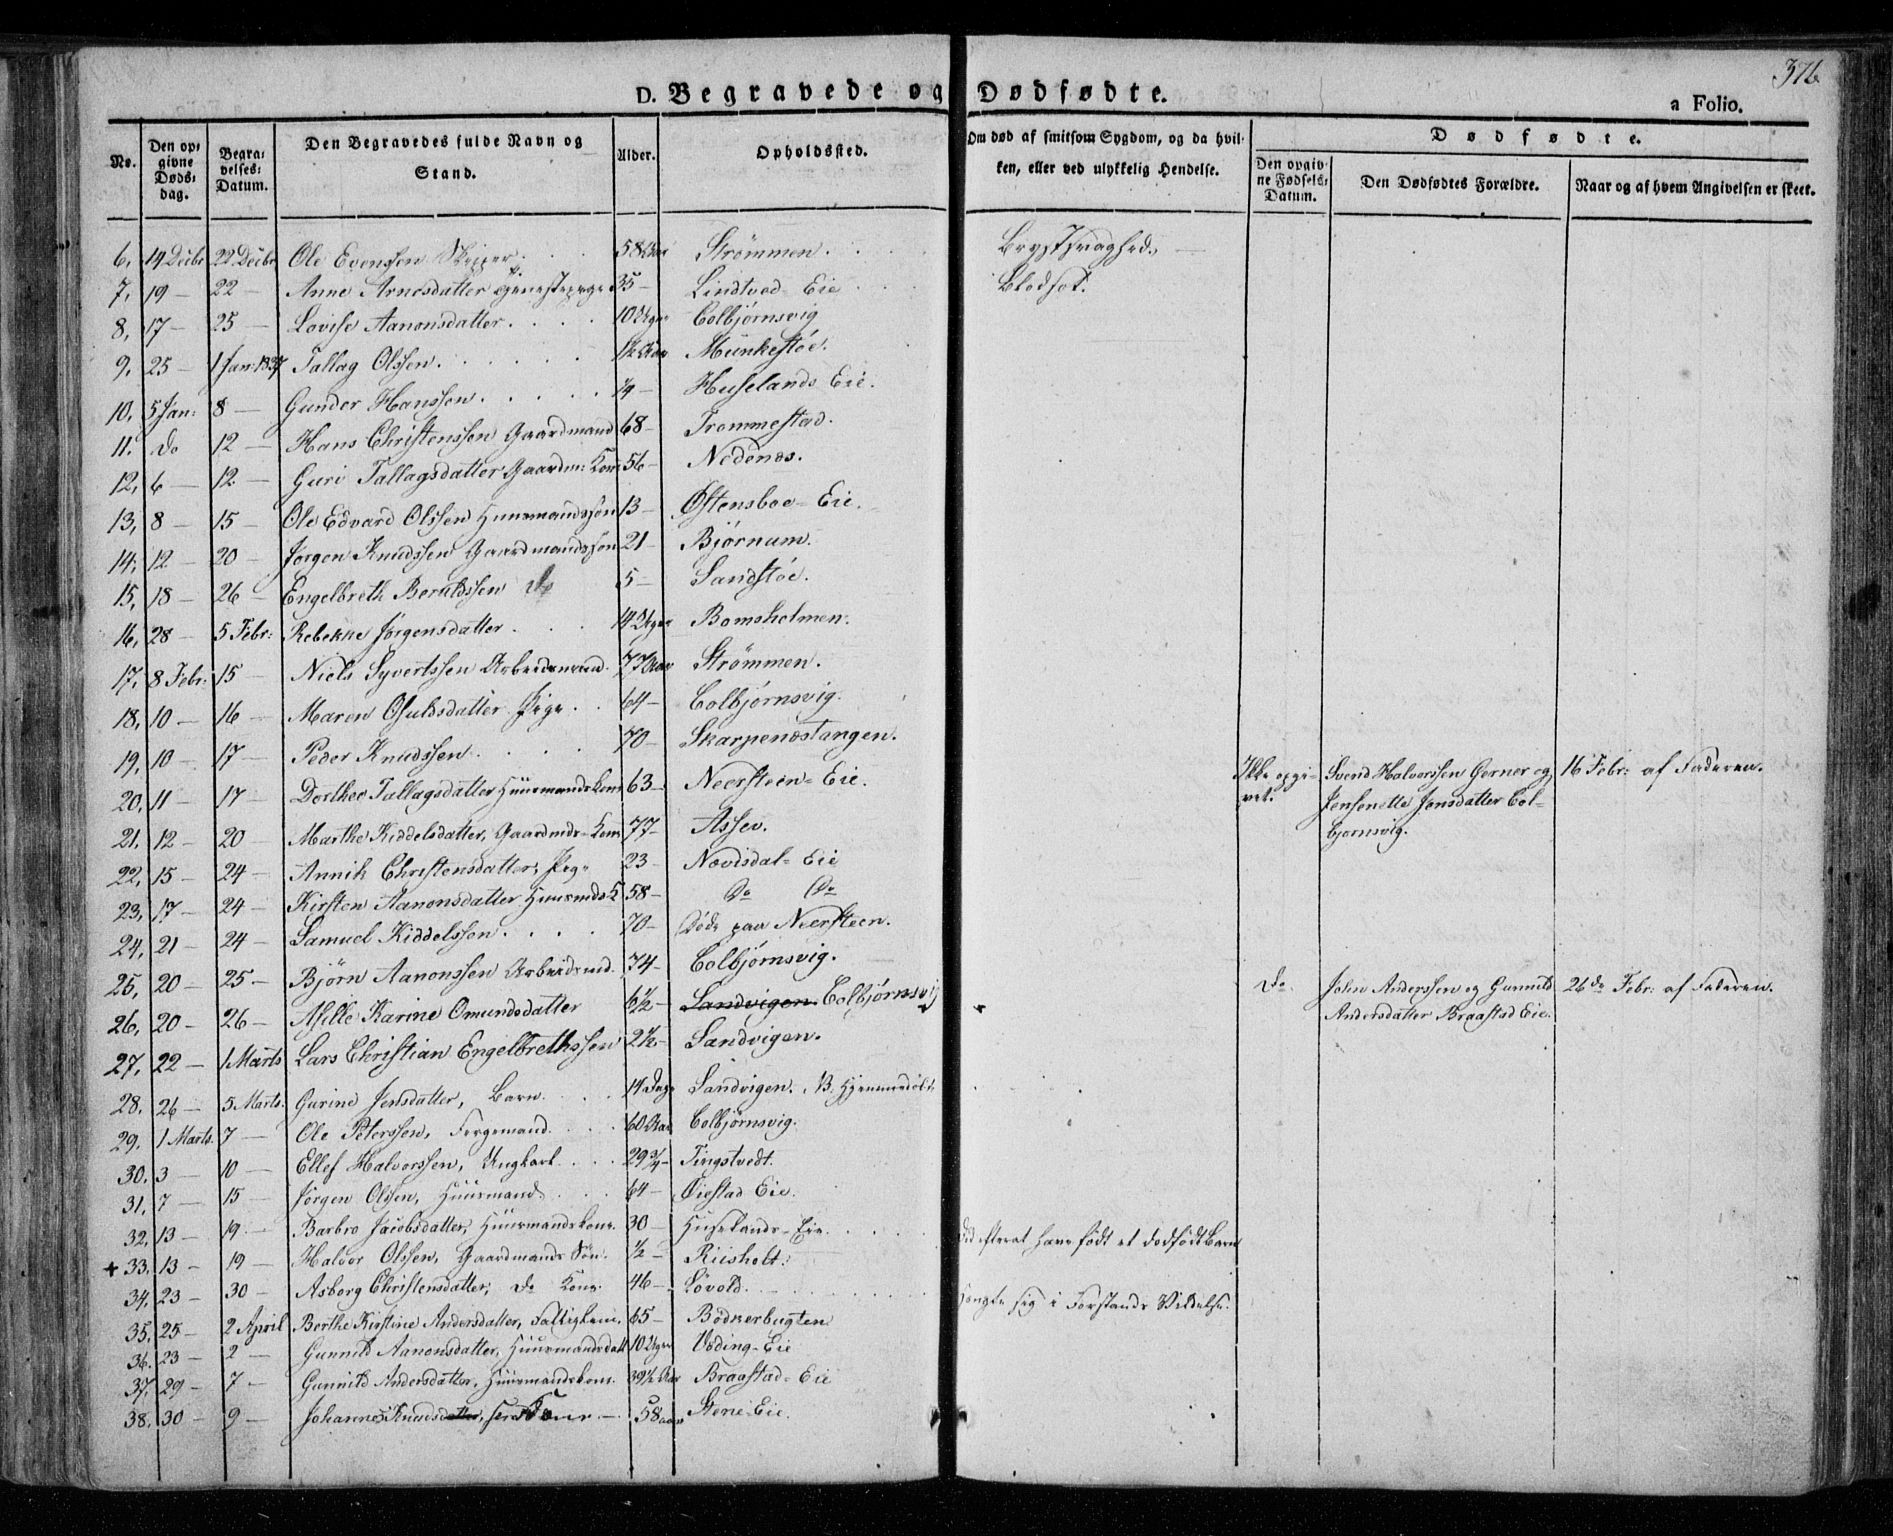 376
D. Begravede og Dødfødte.
a Folio.
No.
Den opgivne Døds-dag.
Begravelses-Datum.
Den Begravedes fulde Navn og Stand.
Alder.
Opholdssted.
Om død af smitsom Sygdom, og da hvilken, eller ved ulykkelig Hendelse.
Dødfødte.
Den opgivne Fødsels-Datum.
Den Dødfødtes Forældre.
Naar og af hvem Angivelsen er skeet.
6, 14 Decbr 22 Decbr Ole Evenssen Skipper. 58 Aar Strømmen. Brystsvaghed.
7, 19 — 22 — Anne Arnesdatter 35 — Lindtved-Eie Blodsot.
8, 17 — 25 — Lovise Aanonsdatter. 10 Uger Colbjørnsvig
9, 25 — 1 Jan: 1837 Tallag Olssen. 1½ Aar Munkestøe.
10, 5 Jan: 8 — Gunder Hanssen. ¼ — Huselands Eie.
11. do 12 — Hans Christenssen Gaardmand 68 — Trommestad.
12, 6 — 12 — Guri Tallagsdatter Gaardm: Kone 56 — Nedenæs.
13, 8 — 15 — Ole Edvard Olssen Huusmandssøn 13 — Østensboe-Eie.
14, 12 — 20 — Jørgen Knudssen Gaardmandssøn 21 — Bjørnum.
15, 18 — 26 — Engelbreth Beruldssen do 5 — Sandstøe.
16, 28 — 5 Febr: Rebekke Jørgensdatter 14 Uger Bomsholmen.
17, 8 Febr: 15 — Niels Syvertssen Arbeidsmand. 77 Aar Strømmen.
18, 10 — 16 — Maren Osuldsdatter Pige. 64 — Colbjørnsvig.
19, 10 — 17 — Peder Knudssen. 70 — Skarpenæstangen.
20, 11 — 17 — Dorthee Tallagsdatter Huusmandskone 63 — Neersteen-Eie.
Ikke opgivet. Svend Halvorssen Gerner og Jensenette Jensdatter Colbjørnsvig. 16 Febr: af Faderen.
21, 12 — 20 — Marthe Kiddelsdatter, Gaardmds-Kone 77 — Assev.
22, 15 — 24 — Annik Christensdatter, Pige 23 — Nævisdal-Eie
23, 17 — 24 — Kirsten Aanonsdatter Huusmds-K 58 — Do Do
24, 21 — 24 — Samuel Kiddelssen. 70 — Døde paa Neersteen.
25, 20 — 25 — Bjørn Aanonssen Arbeidsmd. 74 — Colbjørnsvig.
26, 20 — 26 — Asille Karine Omundsdatter 6½ — Sandvigen Colbjørnsvig
Do. John Anderssen og Gunnild Andersdatter Braastad Eie. 26de Febr: af Faderen.
27, 22 — 1 Marts Lars Christian Engelbrethssen 2½ — Sandvigen.
28. 26 — 5 Marts. Gurine Jensdatter, Barn. 14 Dage Sandvigen. NB. Hjemmedøbt
29. 1 Marts. 7 — Ole Peterssen, Fergemand. 60 Aar Colbjørnsvig.
30. 3 — 10 — Ellef Halvorssen, Ungkarl. 29¾ — Tingstvedt.
31, 7 — 15 — Jørgen Olssen, Huusmand. 64 — Øiestad Eie.
32, 13 — 19. — Barbro Jacobsdatter, Huusmandskone. 30 — Huselands-Eie. efterat have født et dødfødt Barn
+ 33, 13 — 19 — Halvor Olssen, Gaardmands Søn. ½ — Riisholt.
34. 23 — 30 — Asborg Christensdatter, Do Kone. 46 — Løvold. hængte sig i Forstands Vildelse.
35. 25 — 2 April Berthe Kirstine Andersdatter, Fattiglem. 65 — Bødkerbugten
36. 23 — 2 — Gunnild Aanonsdatter, Huusmandsdatt 10 Uger Uding-Eie
37, 29 — 7 — Gunnild Andersdatter, Huusmandskone. 39½ Aar Braastad-Eie
38. 30 — 9 — Johannes Knudsdatter, 58 aar Stene-Eie.